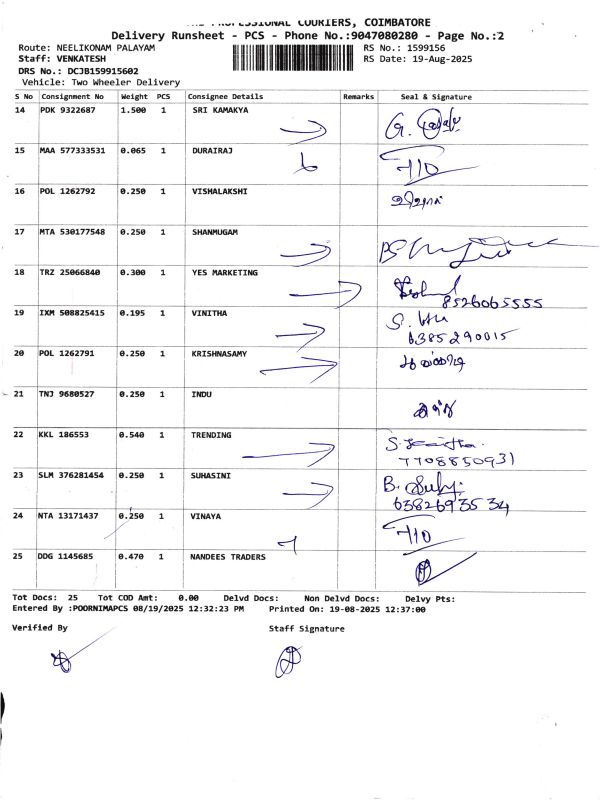 THE PROFESSIONAL COURIERS, COIMBATORE
Delivery Runsheet - PCS - Phone No.:9047080280 - Page No.:2
Route: NEELIKONAM PALAYAM RS No.: 1599156
Staff: VENKATESH RS Date: 19-Aug-2025
DRS No.: DCJB159915602
Vehicle: Two Wheeler Delivery
S No Consignment No Weight PCS Consignee Details Remarks Seal & Signature
14 PDK 9322687 1.500 1 SRI KAMAKYA
15 MAA 577333531 0.065 1 DURAIRAJ
16 POL 1262792 0.250 1 VISHALAKSHI
17 MTA 530177548 0.250 1 SHANMUGAM
18 TRZ 25066840 0.300 1 YES MARKETING
8526065555
19 IXM 508825415 0.195 1 VINITHA
6385290015
20 POL 1262791 0.250 1 KRISHNASAMY
21 TNJ 9680527 0.250 1 INDU
22 KKL 186553 0.540 1 TRENDING
7708850931
23 SLM 376281454 0.250 1 SUHASINI
6382693534
24 NTA 13171437 0.250 1 VINAYA
25 DDG 1145685 0.470 1 NANDEES TRADERS
Tot Docs: 25 Tot COD Amt: 0.00 Delvd Docs: Non Delvd Docs: Delvy Pts:
Entered By :POORNIMAPCS 08/19/2025 12:32:23 PM Printed On: 19-08-2025 12:37:00
Verified By Staff Signature